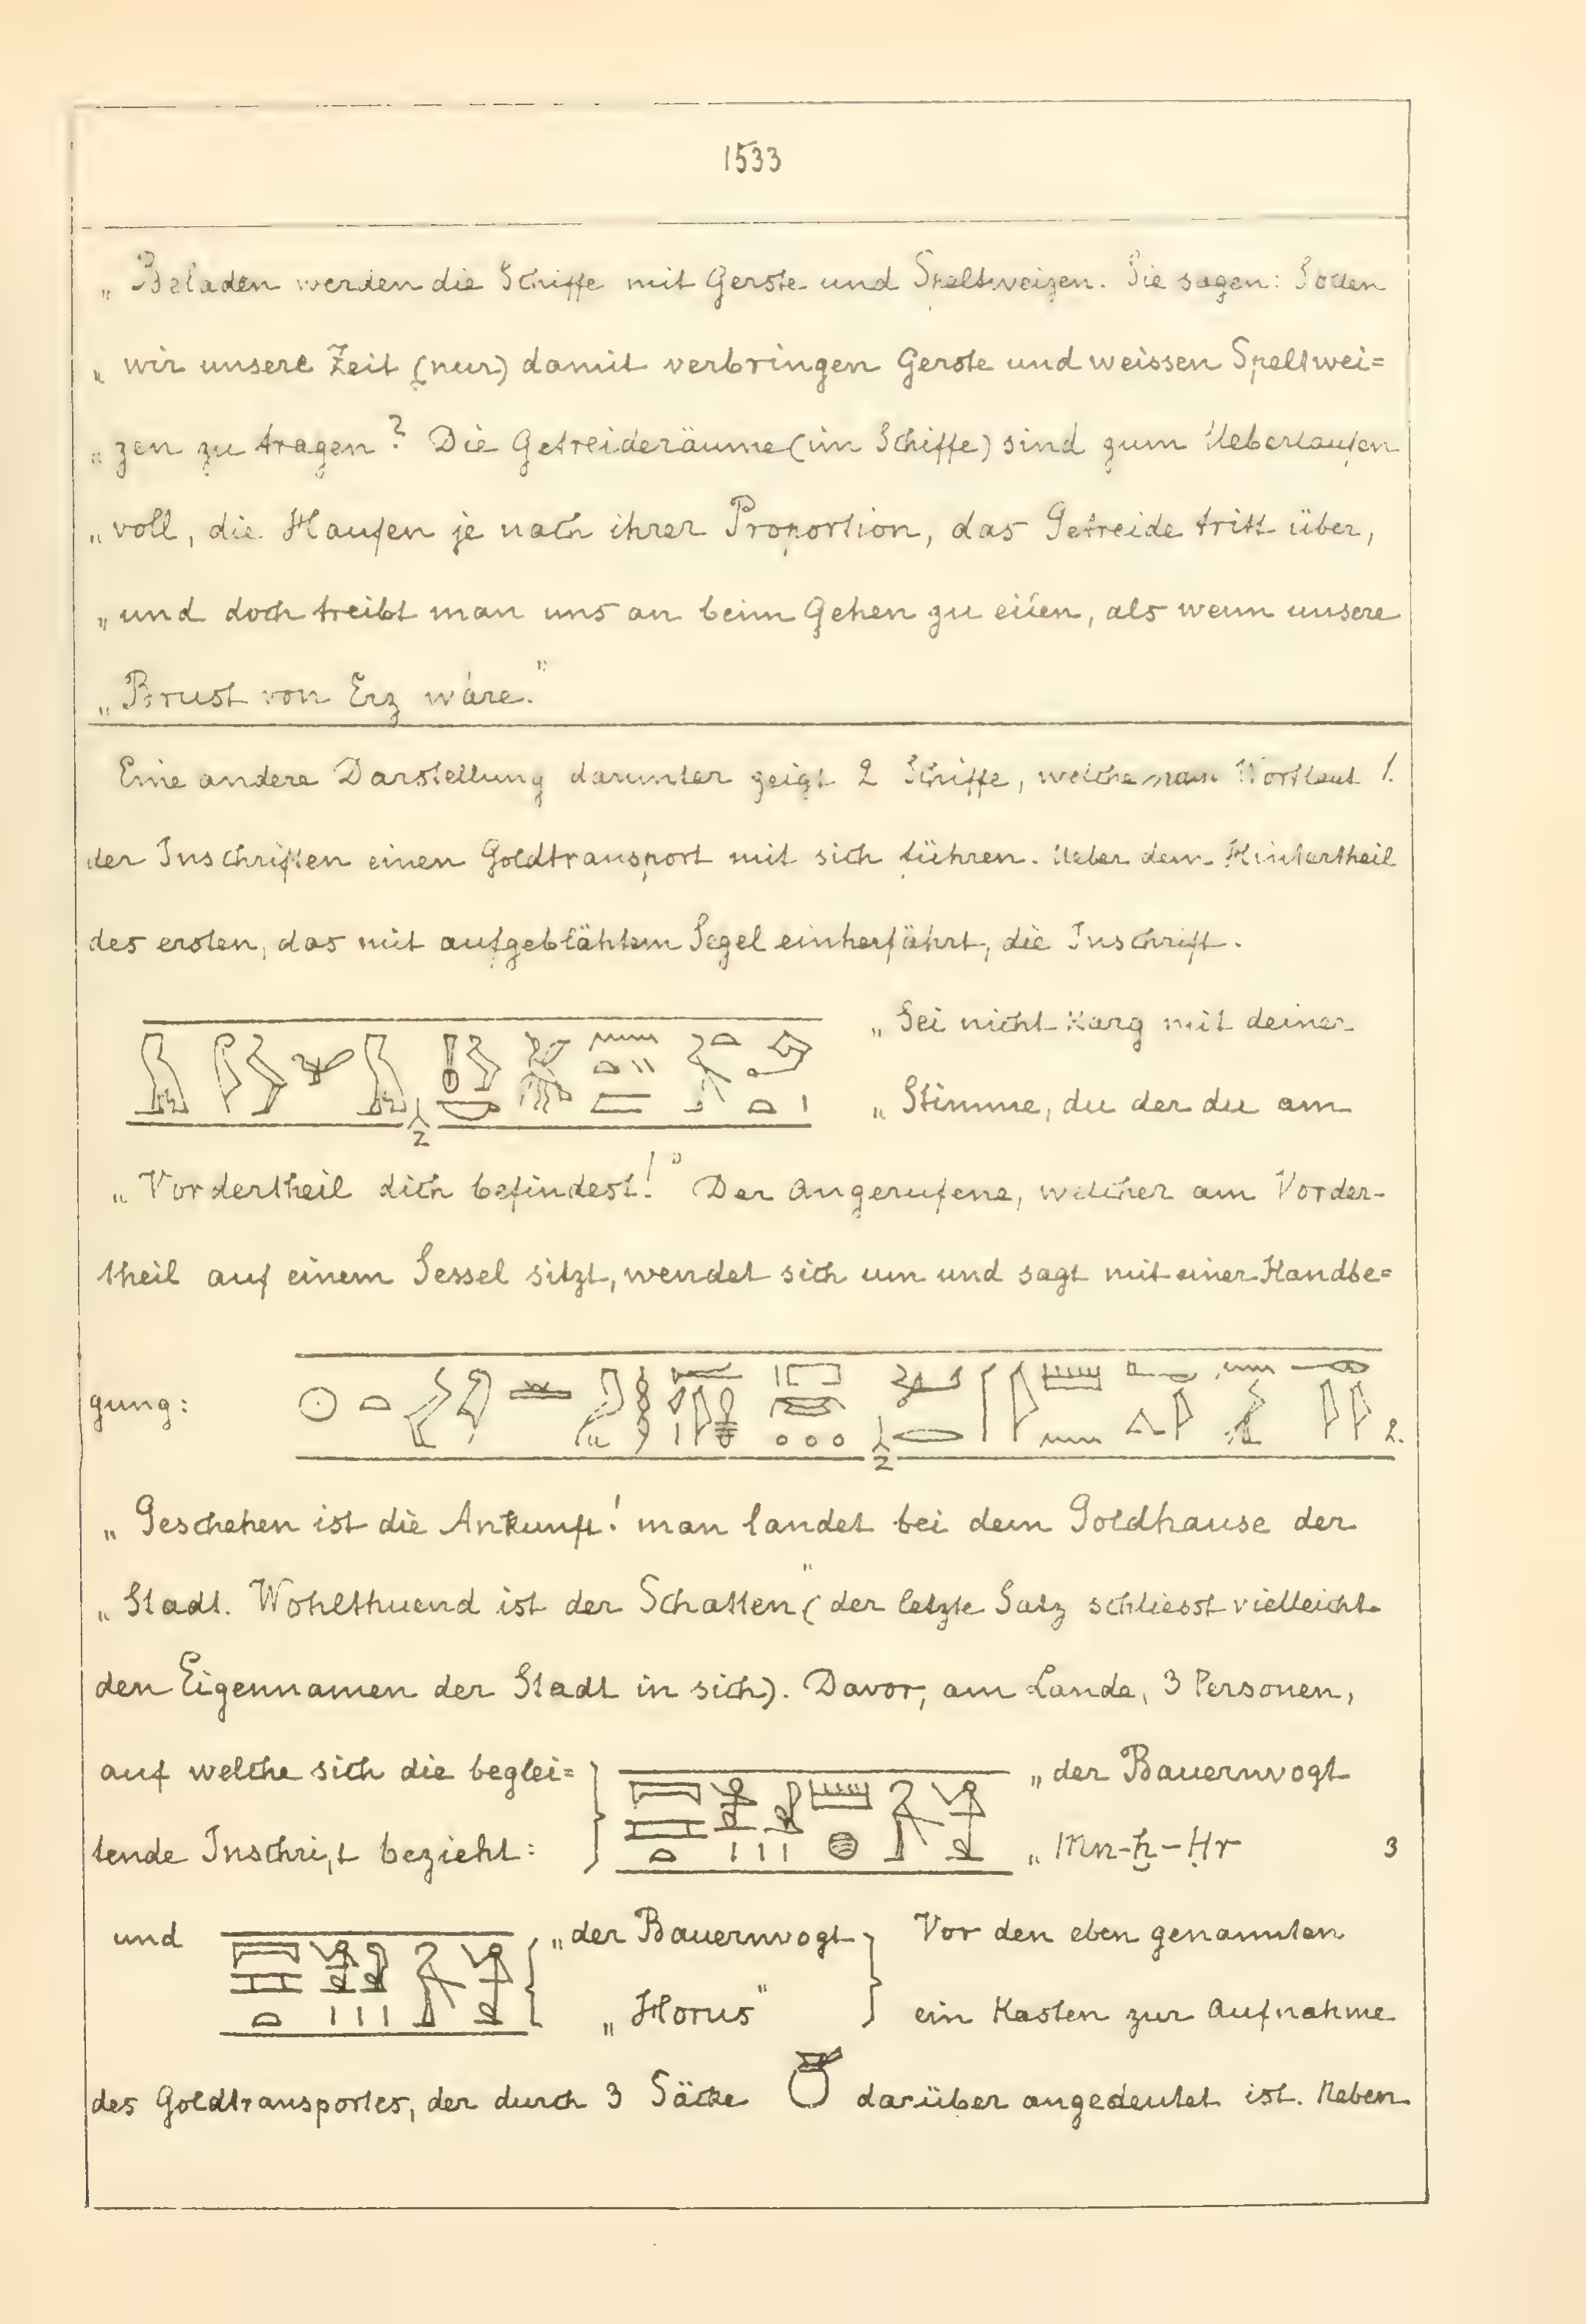 1533
„ Beladen werden die Schiffe mit Gerste und Speltweizen. Sie sagen: Sollen
„ wir unsere Zeit (nur) damit verbringen Gerste und weissen Speltwei=
„ zen zu tragen? Die Getreideräume (im Schiffe) sind zum Ueberlaufen
„ voll, die Haufen je nach ihrer Proportion, das Getreide tritt über,
„ und doch treibt man uns an beim Gehen zu eilen, als wenn unsere
„ Brust von Erz wäre."
Eine andere Darstellung darunter zeigt 2 Schiffe, welche nach Wortlaut 1.
der Inschriften einen Goldtransport mit sich führen. Ueber dem Hintertheil
des ersten, das mit aufgeblähtem Segel einherfährt, die Inschrift.
„ Sei nicht karg mit deiner
„ Stimme, du der du am
2
„ Vordertheil dich befindest!" Der Angerufene, welcher am Vorder-
theil auf einem Sessel sitzt, wendet sich um und sagt mit einer Handbe=
gung: 2.
2
„ Geschehen ist die Ankunft! man landet bei dem Goldhause der
„ Stadt. Wohlthuend ist der Schatten" (der letzte Satz schliesst vielleicht
den Eigennamen der Stadt in sich). Davor, am Lande, 3 Personen,
auf welche sich die beglei= „ der Bauernvogt
tende Inschrift bezieht: „ Mn-ḫ-Ḥr 3
und „ der Bauernvogt Vor den eben genannten
„ Horus" ein Kasten zur Aufnahme
des Goldtransportes, der durch 3 Säcke darüber angedeutet ist. Neben